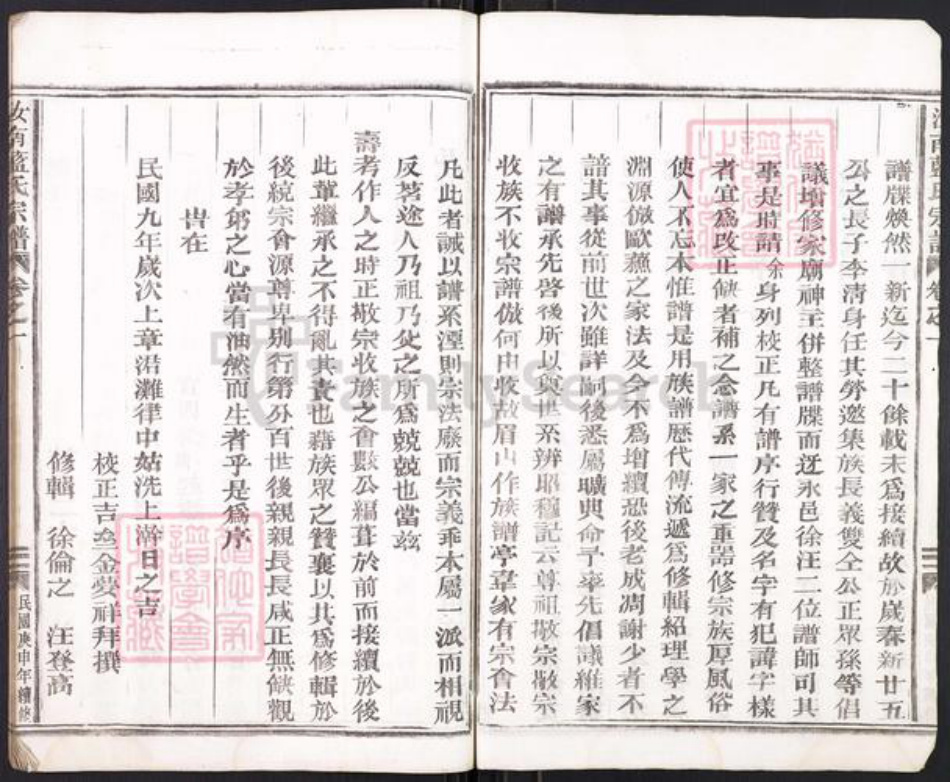 譜牒煥然一新迄今二十餘載未為接續故於歲春新廿五
公之長子李清身任其勞邀集族長義雙仝公正眾孫等倡
議增修家廟神主併整譜牒而迓永邑徐汪二位譜師司其
事是時請余身列校正凡有譜序行贊及名字有犯諱字樣
者宜為改正缺者補之念譜系一家之重器修宗族厚風俗
使人不忘本惟譜是用族譜歷代傳流遞為修輯紹理學之
淵源倣歐蘇之家法及今不為增續恐後老成凋謝少者不
諳其事從前世次雖詳嗣後悉屬曠典命予率先倡議維家
之有譜承先啓後所以奠世系辨昭穆記云尊祖敬宗敬宗
收族不收宗譜倣何由收故眉山作族譜亭韋家有宗會法
凡此者誠以譜系湮則宗法廢而宗義乖本屬一派而相視
反茗途人乃祖乃父之所為兢兢也當茲
壽考作人之時正敬宗收族之會數公編葺於前而接續於後
此輩繼承之不得亂其責也藉族眾之贊襄以其為修輯於
後統宗會源尊卑別行第分百世後親親長長咸正無缺觀
於孝弟之心當有油然而生者乎是為序
旹在
民國九年歲次上章涒灘律中姑洗上澣日之吉
校正吉叁金燮祥拜撰
修輯 徐倫之 汪登高
汝南藍氏宗譜 卷之一
民國庚申年續修
FamilySearch